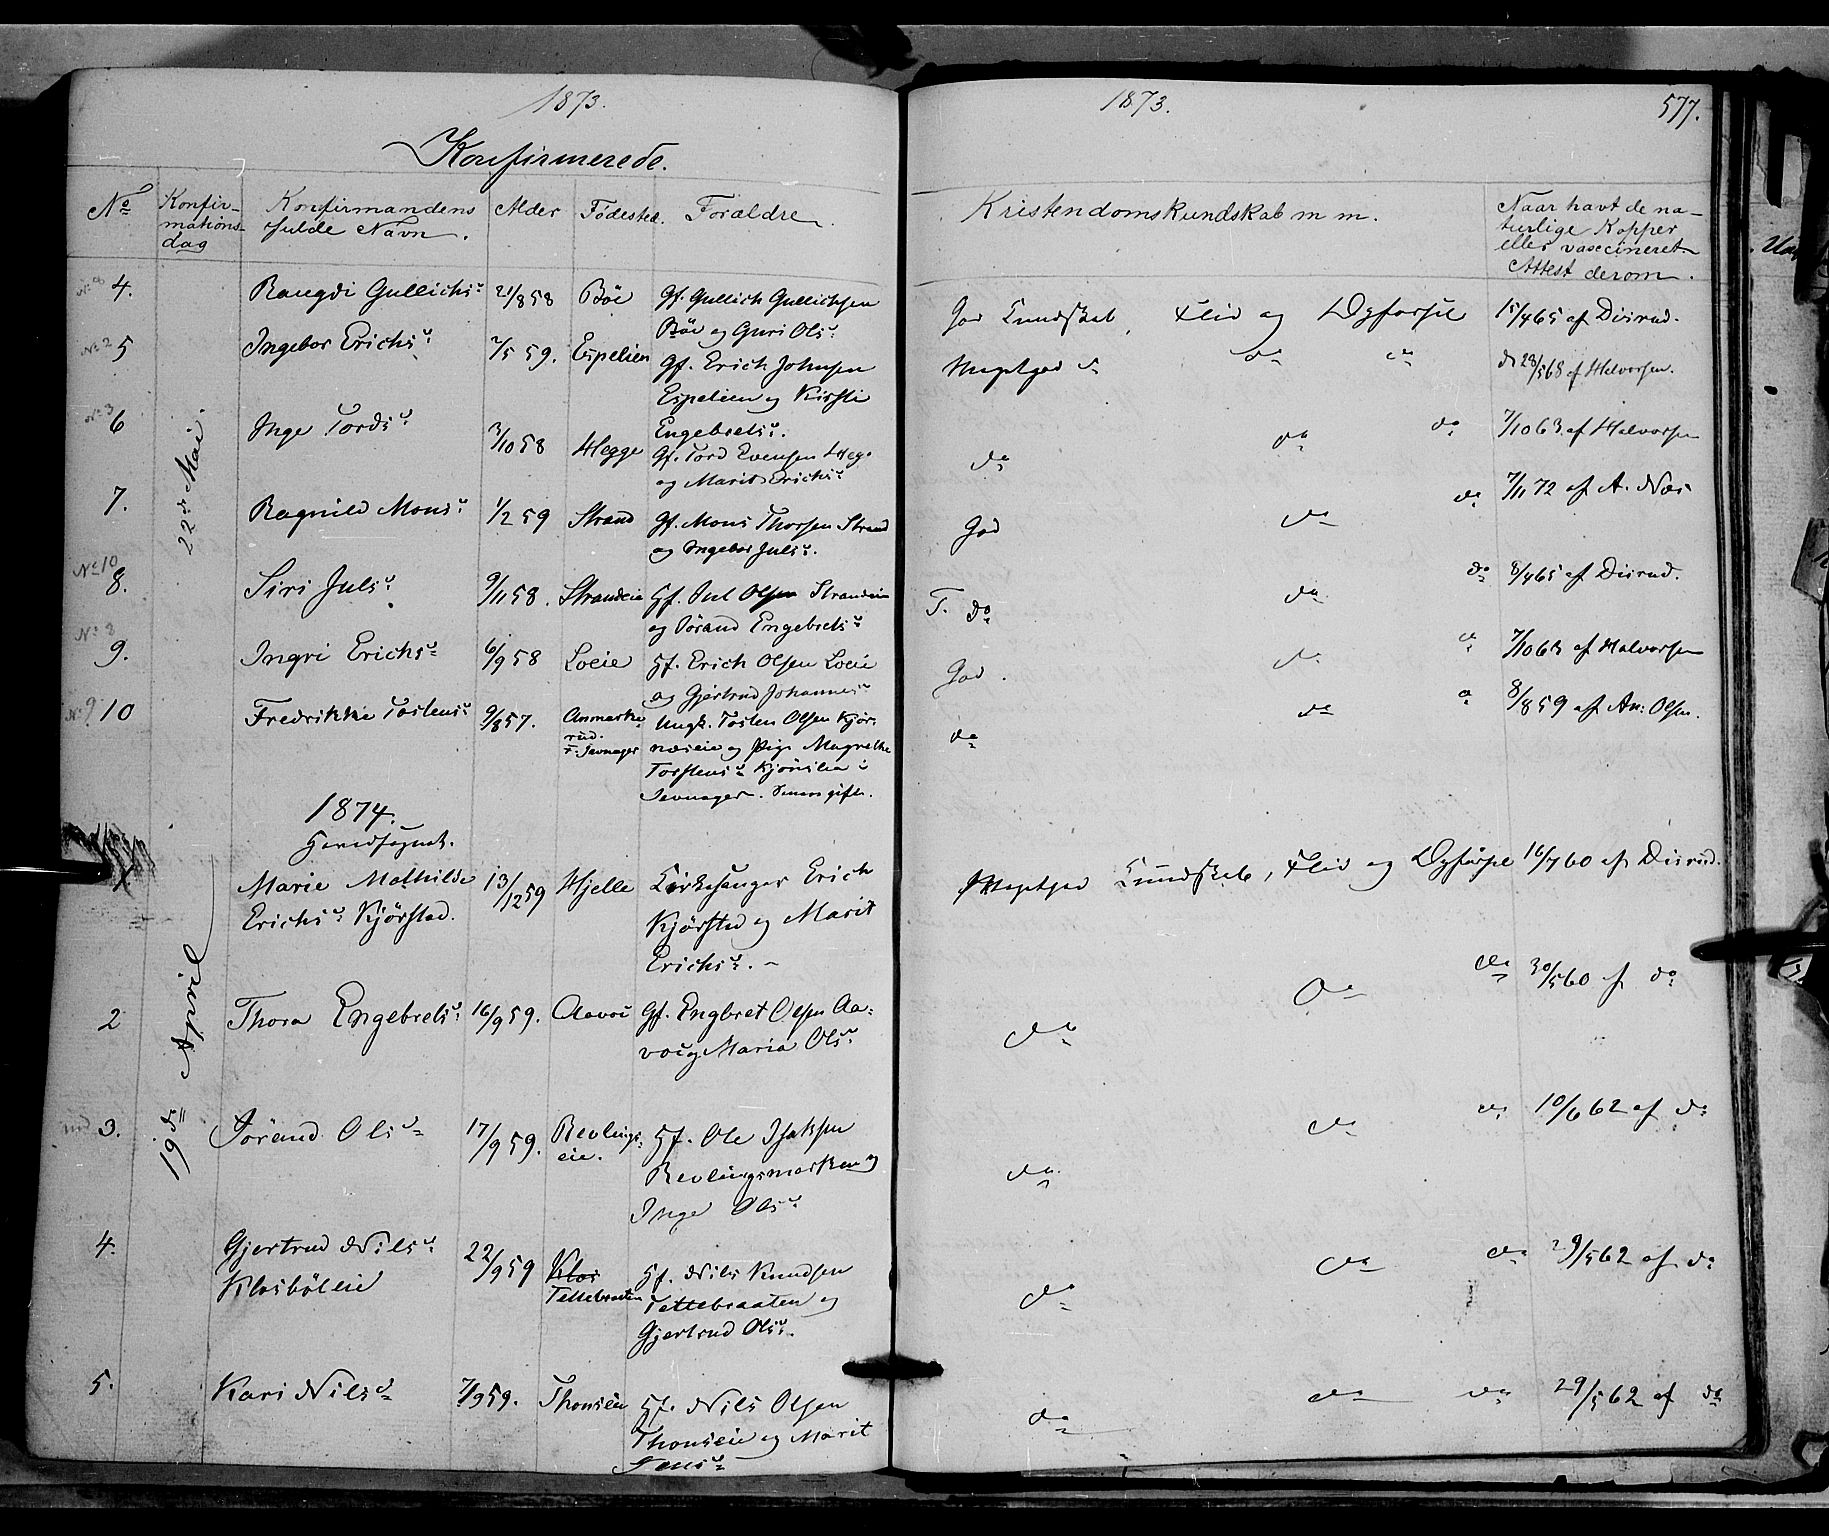 1873.
Konfirmerede.
No
Konfir-
mations-
dag
Konfirmandens
fulde Navn.
Alder
Fødested.
Forældre
22de Mai.
No 8
4.
Rangdi Gullichsd
21/8 58
Bøe
Gf. Gullich Gullichsen
Bøe og Guri Olsd.
No 2
5
Ingebor Erichsd
2/5 59.
Espelien
Gf. Erich Johnsen
Espelien og Kirsti
Engebretsd.
No 3
6
Inge Tordsd
3/10 58
Hegge
Gf. Tord Evensen Heg.
og Marit Erichsd
7.
Ragnild Monsd
1/2 59
Strand
Gf. Mons Thorsen Strand
og Ingebor Julsd.
No 10
8.
Siri Julsd
9/11 58.
Strandeie
Hf. Jul Olsen Strandeie
og Jørand Engebretsd
No 8
9.
Ingri Erichsd
6/9 58
Loeie
Hf. Erich Olsen Loeie
og Gjertrud Johannesd
No 9
10
Fredrikke Tostensd
9/8 57.
Anmarke
rud.
i Jevnager
Ungk. Tosten Olsen Kjør-
næseie og Pige Magnethe
Torstensd Kjønslia i
Jevnager. Senere gifte.
1874.
Hovedsognet.
19de April
Marie Mathilde
Erichsd Kjørstad.
13/12 59
Hjelle
Kirkesanger Erich
Kjørstad og Marit
Erichsd. -
2
Thora Engebretsd
16/9 59.
Aavoi
Gf. Engbret Olsen Aa-
voi og Maria Olsd
3.
Jørand Olsd
17/9 59.
Revlings-
eie.
Hf. Ole Isaksen
Revlingsmarken og
Inge Olsd
4.
Gjertrud Nilsd
Klosbøleie
22/9 59
Klos
Tettebraaten
Hf. Nils Knudsen
Tettebraaten og
Gjertrud Olsd.
5.
Kari Nilsd
7/9 59.
Thonseie
Hf. Nils Olsen
Thonseie og Marit
1873.
577.
Kristendomskundskab m m.
Naar havt de na-
turlige Kopper
eller vaccineret
Attest derom.
God Kundskab, Flid og Opførsel
15/4 65 af Disrud.
Megetgod do do do
do 28/5 68 af Halvorsen.
do do do
7/10 63. af Halvorsen
God do do
7/11 72 af A. Næs
T. do do do
8/4 65 af Disrud.
God. do do
7/10 63 af Halvorsen
do do do
8/8 59 af An: Olsen.
Megetgod Kundskab, Flid og Opførsel
16/7 60 af Disrud.
do do do
30/5 60 af do
do do do
10/6 62 af do
do do do
29/5 62 af do
do do do
29/5 62 af do